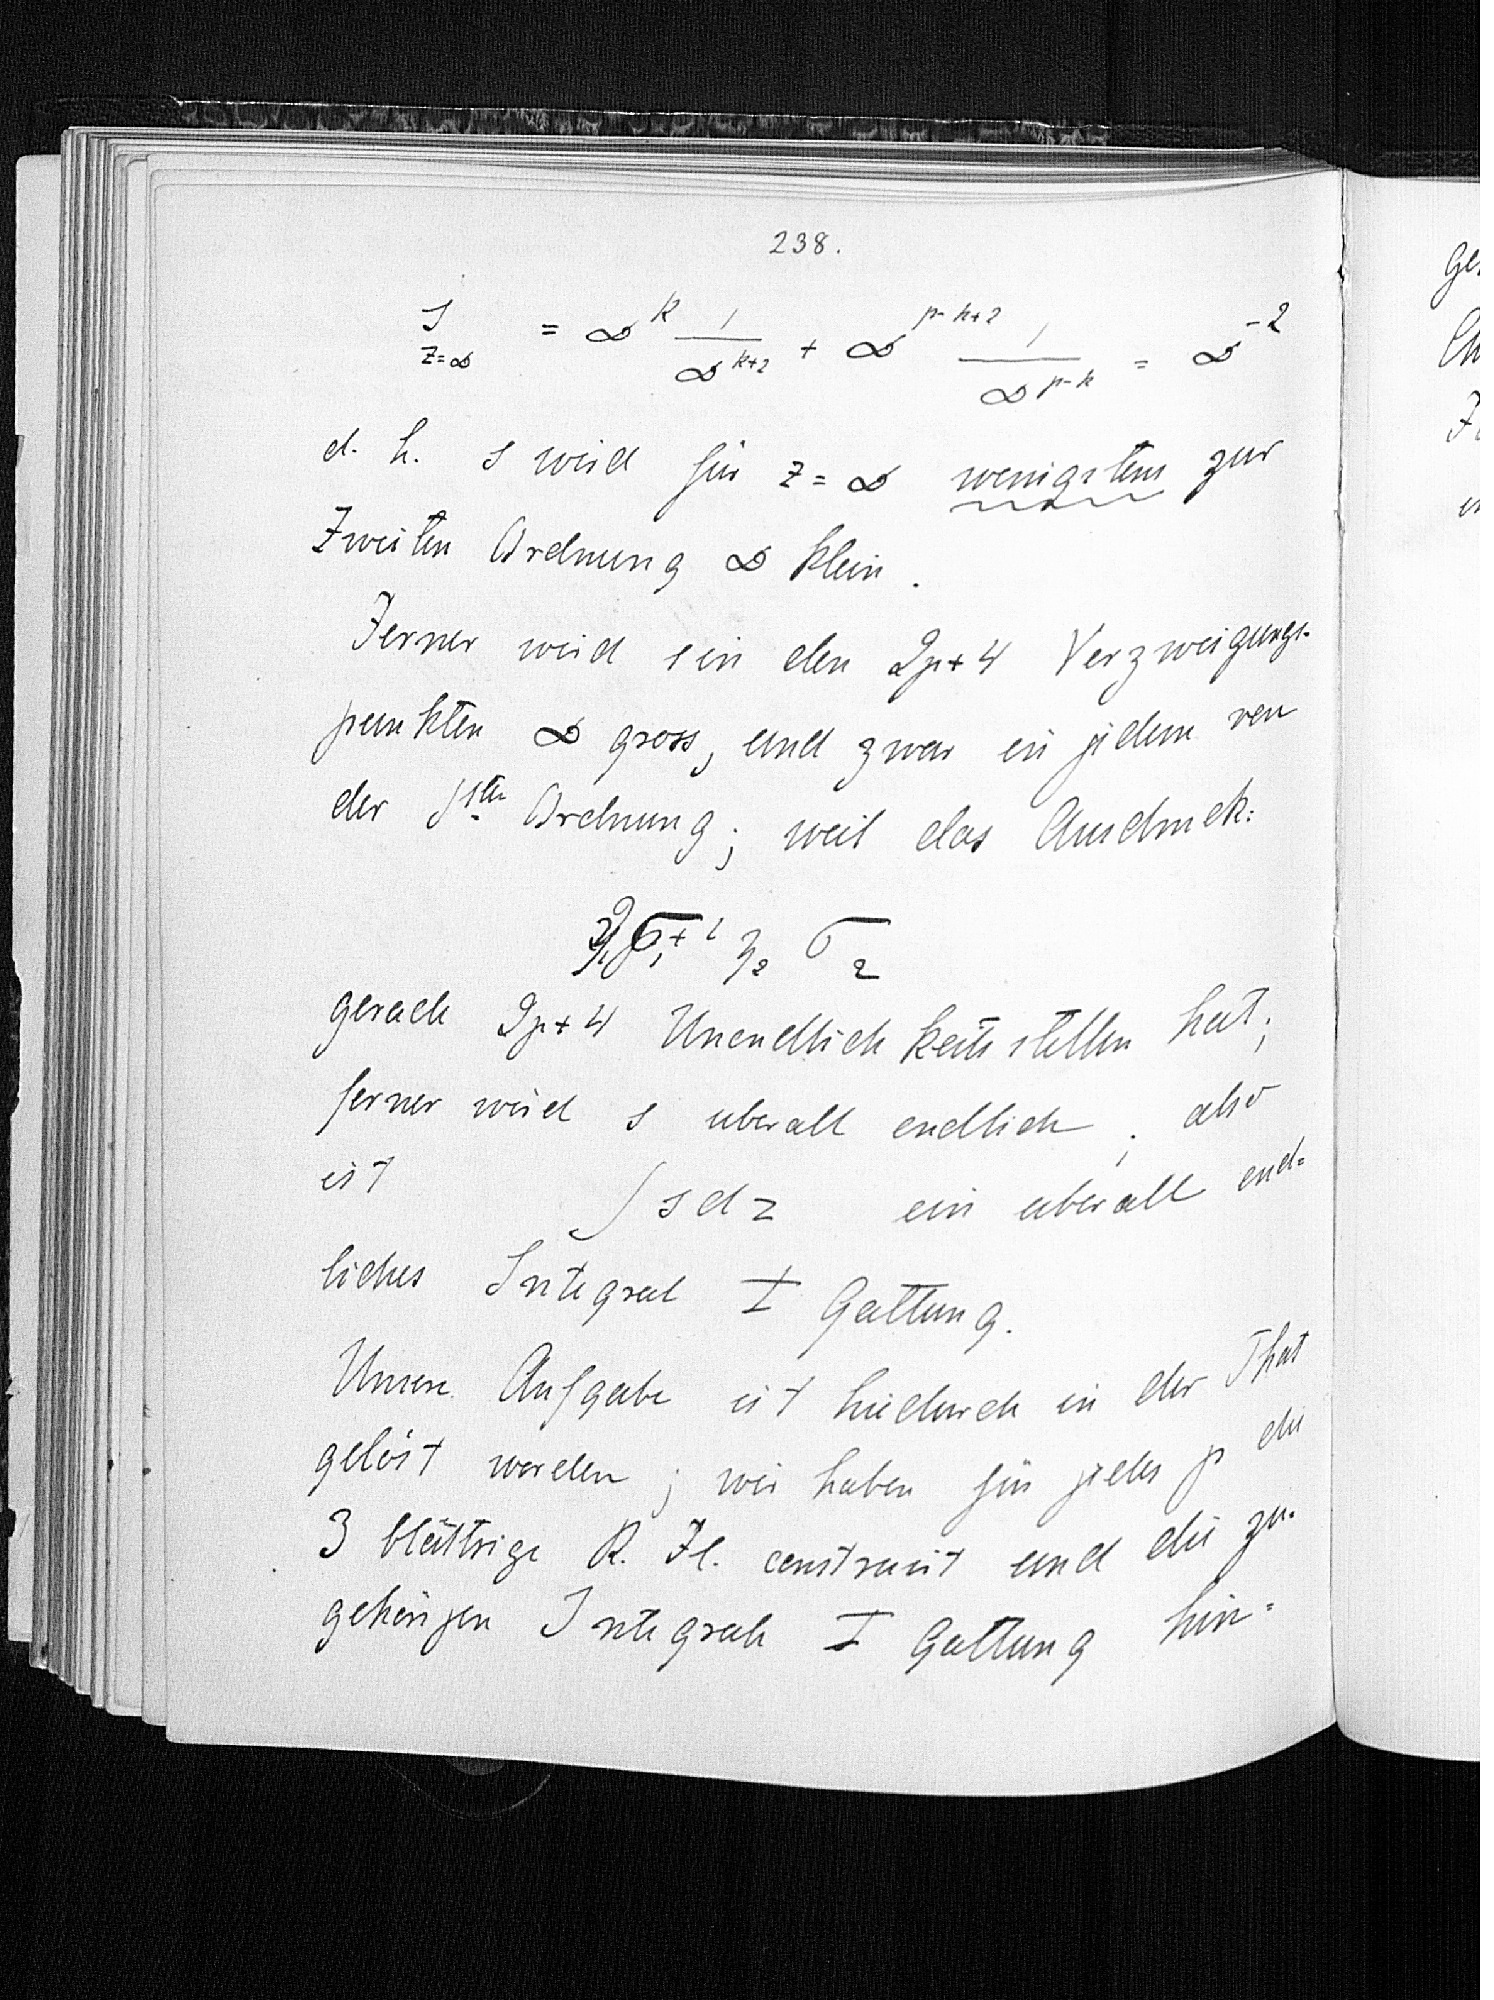 238.
s z=∞ = ∞^k 1/∞^{k+2} + ∞^{p-k+2} 1/∞^{p-k} = ∞^{-2}
d. h. s wird für z = ∞ wenigstens zur
Zweiten Ordnung ∞ klein.
Ferner wird s in den 2p+4 Verzweigungs-
punkten ∞ gross, und zwar in jedem von
der 1ten Ordnung; weil das Ausdruck:
η₂ σ₂
gerade 2p+4 Unendlichkeitsstellen hat;
ferner wird s uberall endlich; also
ist ∫ s dz ein uberall end=
liches Integral I Gattung.
Unsere Aufgabe ist hiedurch in der That
gelöst worden; wir haben für jedes p die
3 blättrige R. Fl. construirt und die zu-
gehörigen Integrale I Gattung hin=
ges